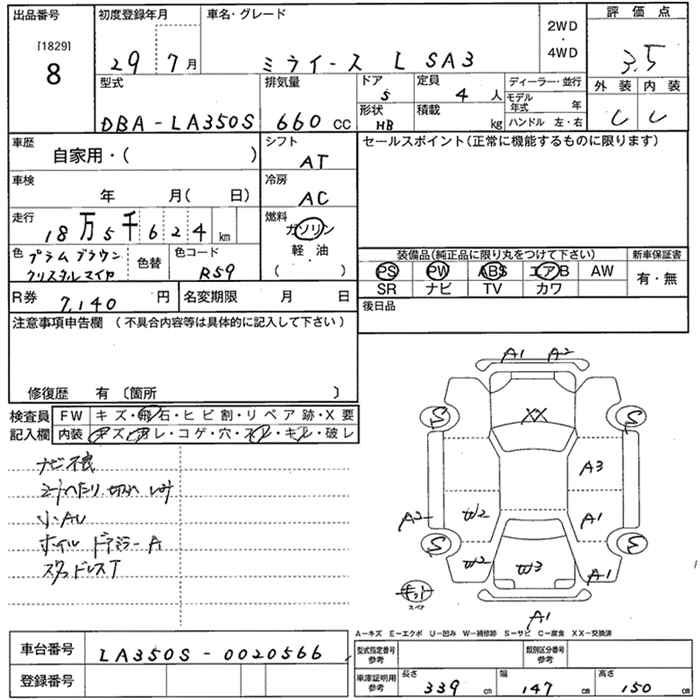 出品番号
[1829]
8
初度登録年月
29 7月
車名・グレード
ミライース L SA3
2WD
・
4WD
評価点
3.5
外装 内装
型式
DBA-LA350S
排気量
660 CC
ドア
5
定員
4 人
ディーラー・並行
形状
HB
積載
kg
モデル年式 年
ハンドル 左・右
車歴
自家用・( )
シフト
AT
車検
年 月( 日)
冷房
AC
走行
18万5千624 km
燃料
ガソリン
・
軽・油
( )
色
プラムブラウン
クリスタルマイカ
色替
色コード
R59
R券
7,140 円
名変期限 月 日
セールスポイント(正常に機能するものに限ります)
装備品(純正品に限り丸をつけて下さい)
PS PW ABS エアB AW
SR ナビ TV カワ
新車保証書
有・無
後日品
注意事項申告欄(不具合内容等は具体的に記入して下さい)
修復歴 有〔箇所 〕
検査員
記入欄
FW キズ・飛石・ヒビ割・リペア跡・X要
内装 キズ・汚レ・コゲ・穴・スレ・キレ・破レ
ナビ不良
小AU
ホイル ドアミラーA
スタッドレスT
A1 A2
XX
S S
A3
A2 W2 A1
S S
W2 W3 A1
スペア
A1
A-キズ E-エクボ U-凹み W-補修跡 S-サビ C-腐食 XX-交換済
車台番号
LA350S-0020566
登録番号
型式指定番号
参考
類別区分番号
参考
車庫証明用
参考
長さ
339 cm
幅
147 cm
高さ
150 cm